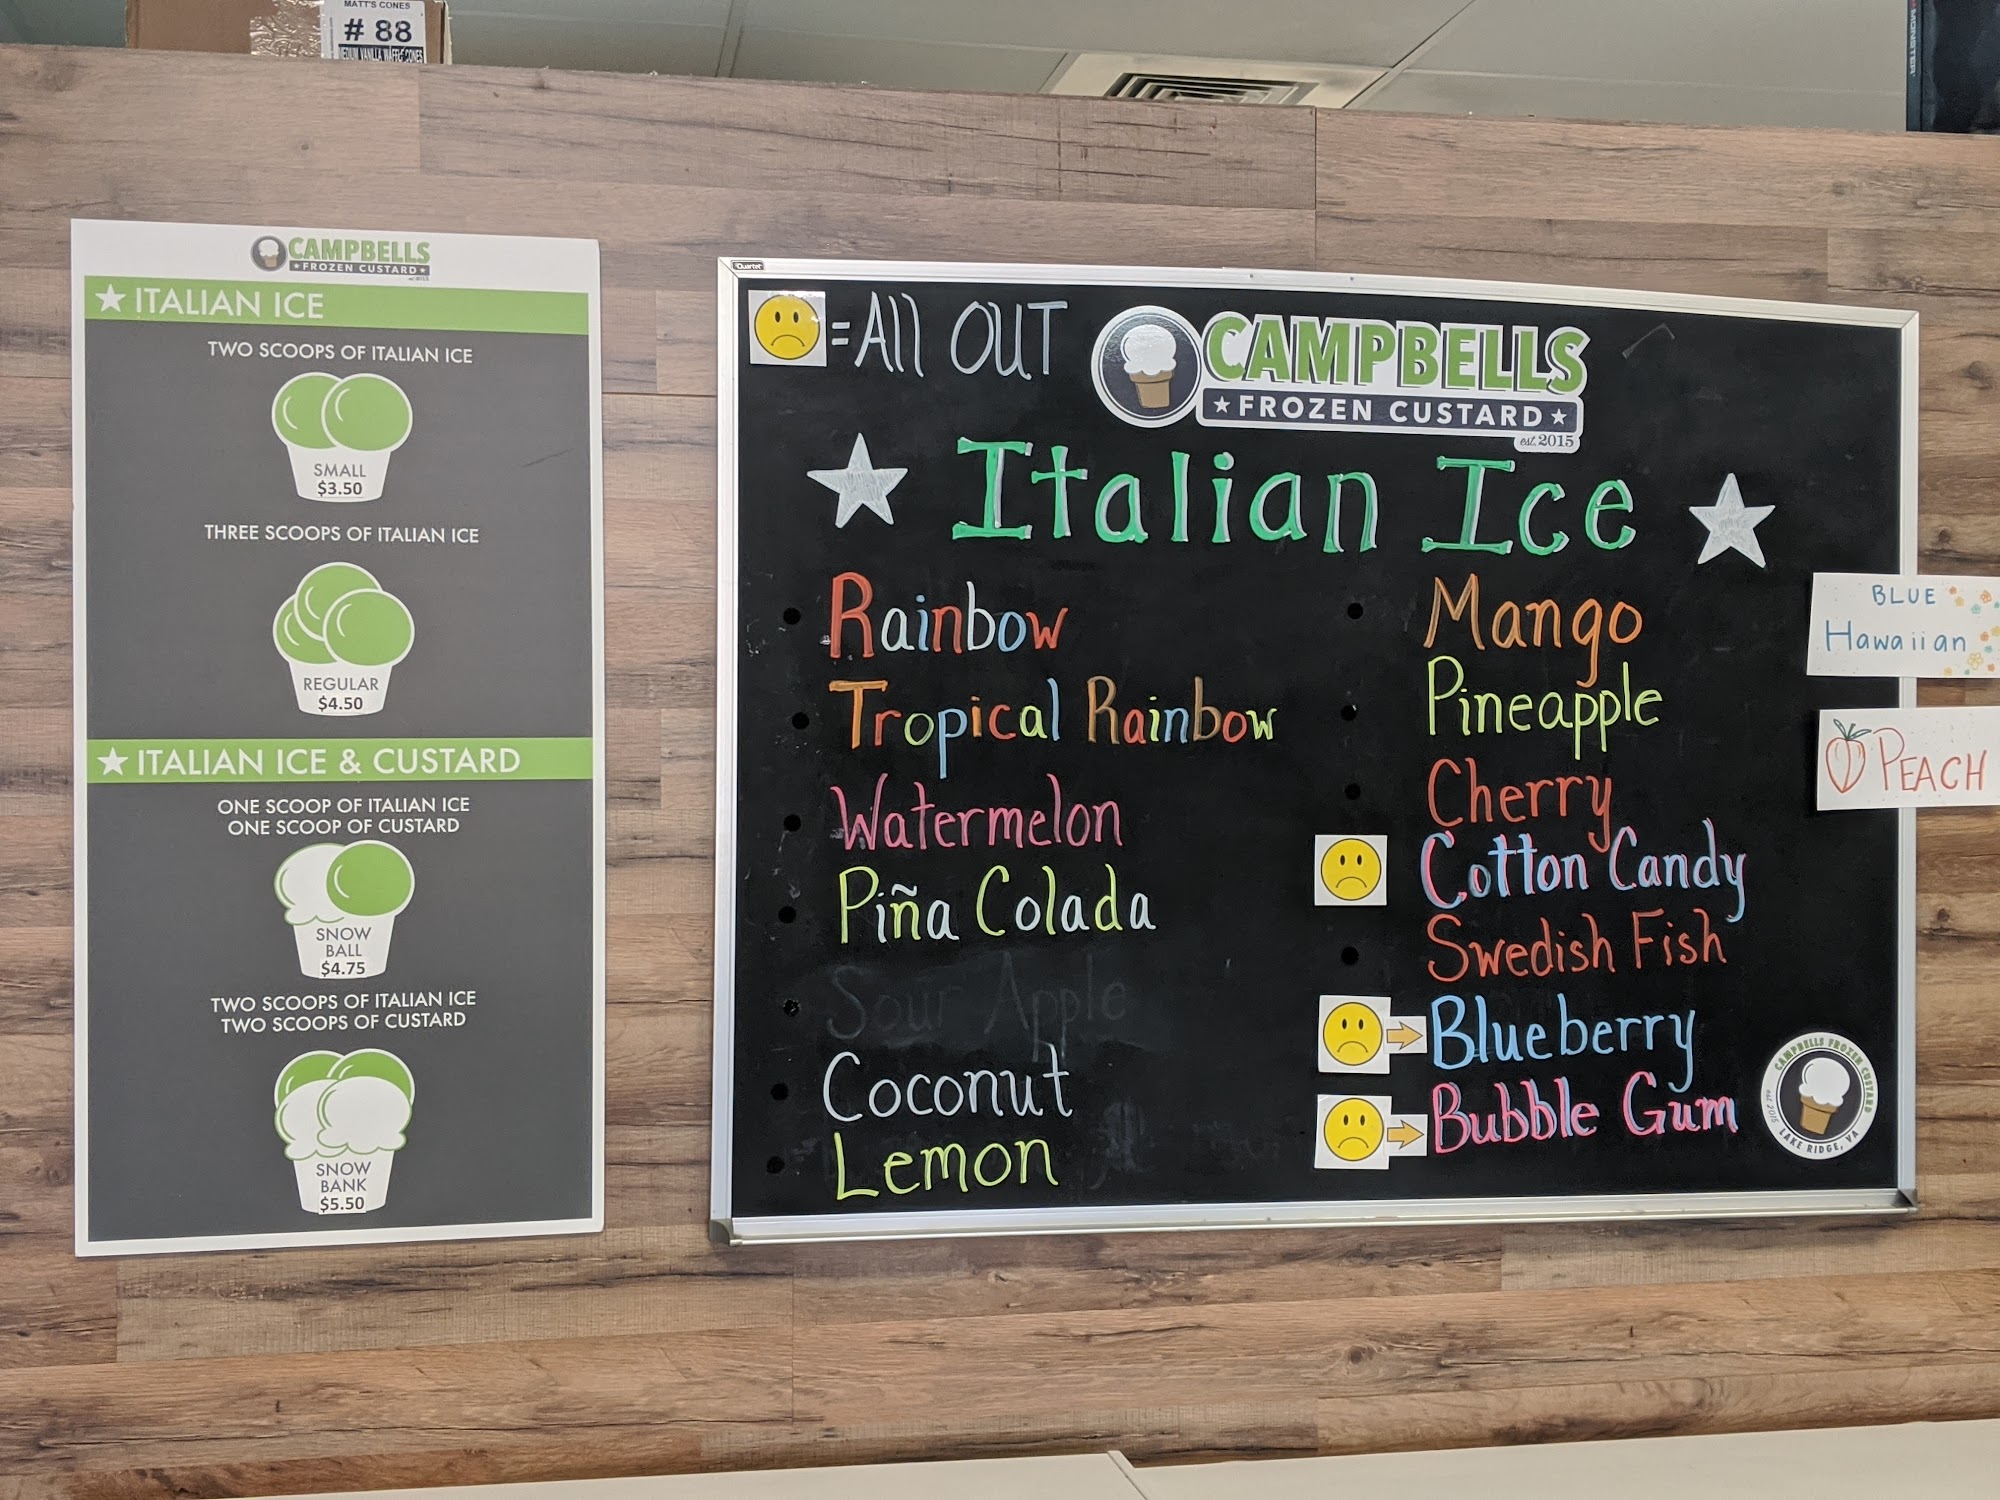 MATT'S CONES
# 88
MEDIUM VANILLA WAFFLE CONES
MONSTER
CAMPBELLS
FROZEN CUSTARD
ITALIAN ICE
TWO SCOOPS OF ITALIAN ICE
SMALL
$3.50
THREE SCOOPS OF ITALIAN ICE
REGULAR
$4.50
ITALIAN ICE & CUSTARD
ONE SCOOP OF ITALIAN ICE
ONE SCOOP OF CUSTARD
SNOW
BALL
$4.75
TWO SCOOPS OF ITALIAN ICE
TWO SCOOPS OF CUSTARD
SNOW
BANK
$5.50
Quartet
=All OUT
CAMPBELLS
FROZEN CUSTARD
est. 2015
Italian Ice
Rainbow
Tropical Rainbow
Watermelon
Piña Colada
Sour Apple
Coconut
Lemon
Mango
Pineapple
Cherry
Cotton Candy
Swedish Fish
Blueberry
Bubble Gum
BLUE
Hawaiian
PEACH
CAMPBELLS FROZEN CUSTARD
est 2015
LAKE RIDGE, VA